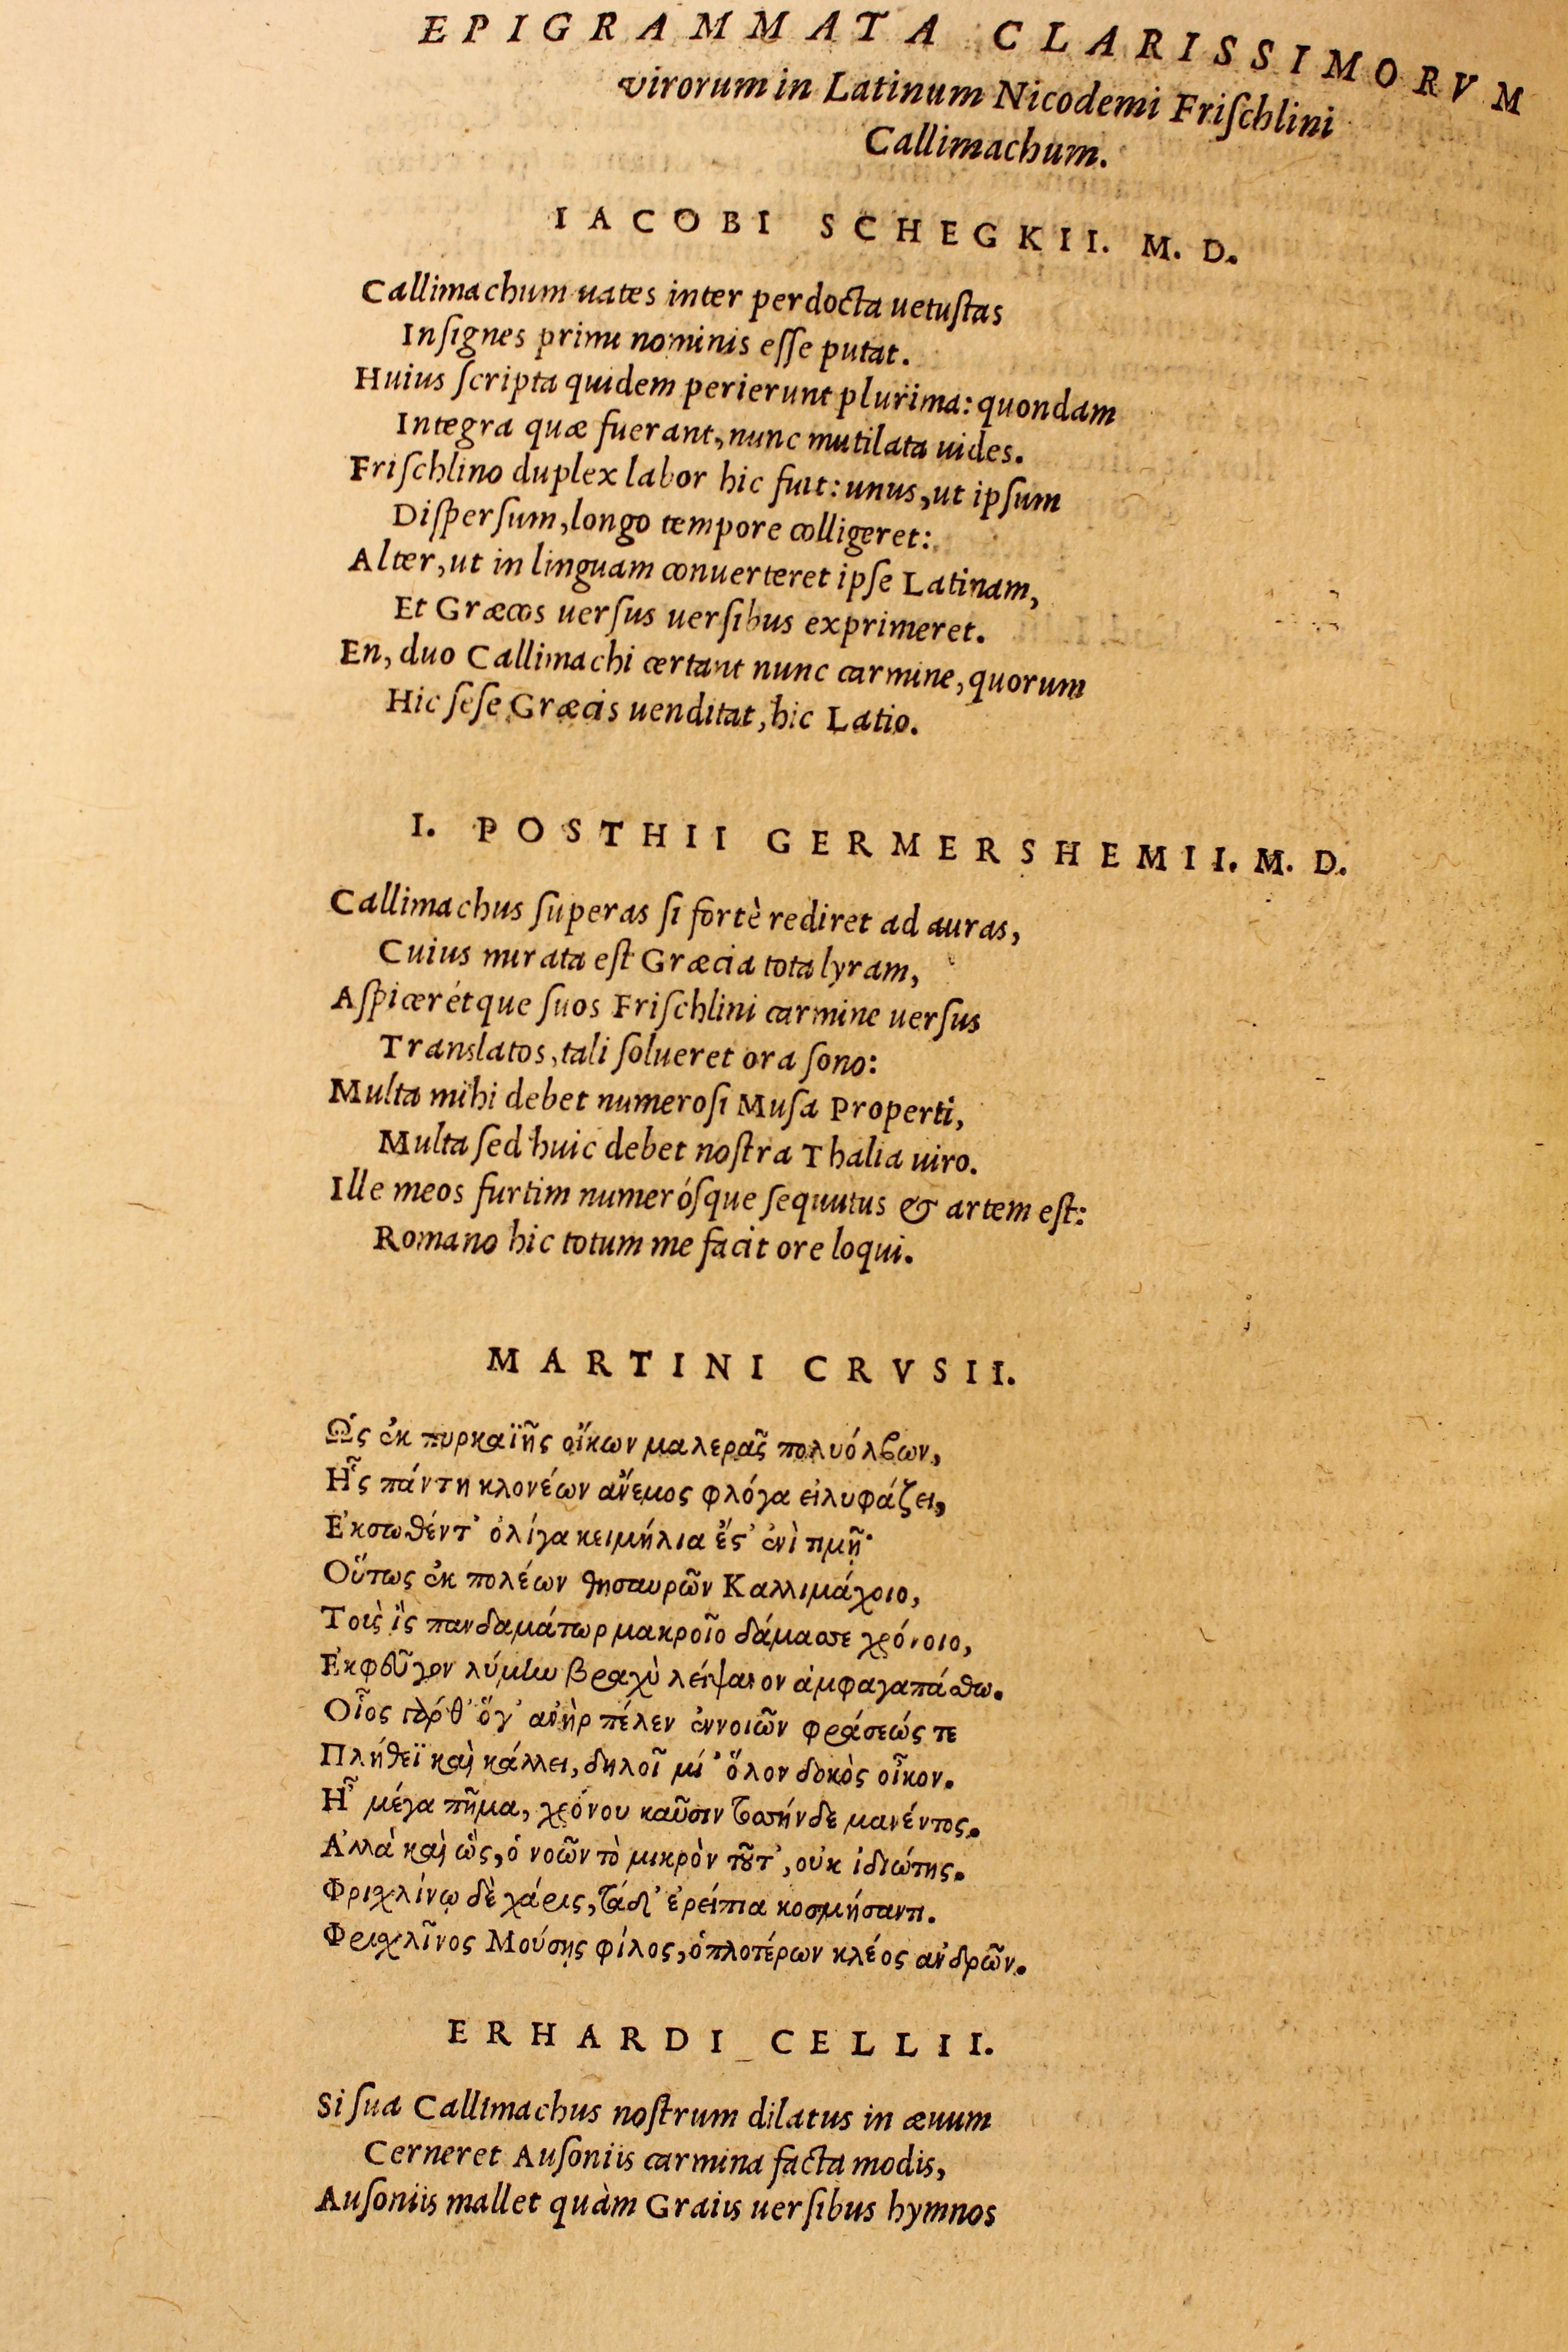 EPIGRAMMATA CLARISSIMORVM
virorum in Latinum Nicodemi Friſchlini
Callimachum.
IACOBI SCHEGKII. M. D.
Callimachum uates inter perdocta uetuſtas
Inſignes primi nominis eſſe putat.
Huius ſcripta quidem perierunt plurima: quondam
Integra quæ fuerant, nunc mutilata uides.
Friſchlino duplex labor hic fuit: unus, ut ipſum
Diſperſum, longo tempore colligeret:
Alter, ut in linguam conuerteret ipſe Latinam,
Et Græcos uerſus uerſibus exprimeret.
En, duo Callimachi certant nunc carmine, quorum
Hic ſeſe Græcis uenditat, hic Latio.
I. POSTHII GERMERSHEMII. M. D.
Callimachus ſuperas ſi fortè rediret ad auras,
Cuius mirata eſt Græcia tota lyram,
Aſpicerétque ſuos Friſchlini carmine uerſus
Translatos, tali ſolueret ora ſono:
Multa mihi debet numeroſi Muſa Properti,
Multa ſed huic debet noſtra Thalia uiro.
Ille meos furtim numeróſque ſequutus & artem eſt:
Romano hic totum me facit ore loqui.
MARTINI CRVSII.
Ως ἐκ πυρκαϊῆς οἴκων μαλερᾶς πολυόλβων,
Ης πάντη κλονέων ἄνεμος φλόγα εἰλυφάζει,
Εκσωθέντ' ὀλίγα κειμήλια ἔς' ἐνὶ τιμῇ·
Οὕτως ἐκ πολέων θησαυρῶν Καλλιμάχοιο,
Τοὺς ἲς πανδαμάτωρ μακροῖο δάμασσε χρόνοιο,
Εκφεῦγον λύμην βραχὺ λείψανον ἀμφαγαπάσθω.
Οἷος πόρθ' ὅγ' ἀνὴρ πέλεν ἐννοιῶν φράσεώς τε
Πλήθεϊ καὶ κάλλει, δηλοῖ μί' ὅλον δοκὸς οἶκον.
Η μέγα πῆμα, χρόνου καῦσιν τοσήνδε μανέντος.
Αλλὰ καὶ ὣς, ὁ νοῶν τὸ μικρὸν τοῦτ', οὐκ ἰδιώτης.
Φριχλίνῳ δὲ χάρις, τάδ' ἐρείπια κοσμήσαντι.
Φριχλῖνος Μούσης φίλος, ὁπλοτέρων κλέος ἀνδρῶν.
ERHARDI CELLII.
Si ſua Callimachus noſtrum dilatus in æuum
Cerneret Auſoniis carmina facta modis,
Auſoniis mallet quàm Graiis uerſibus hymnos